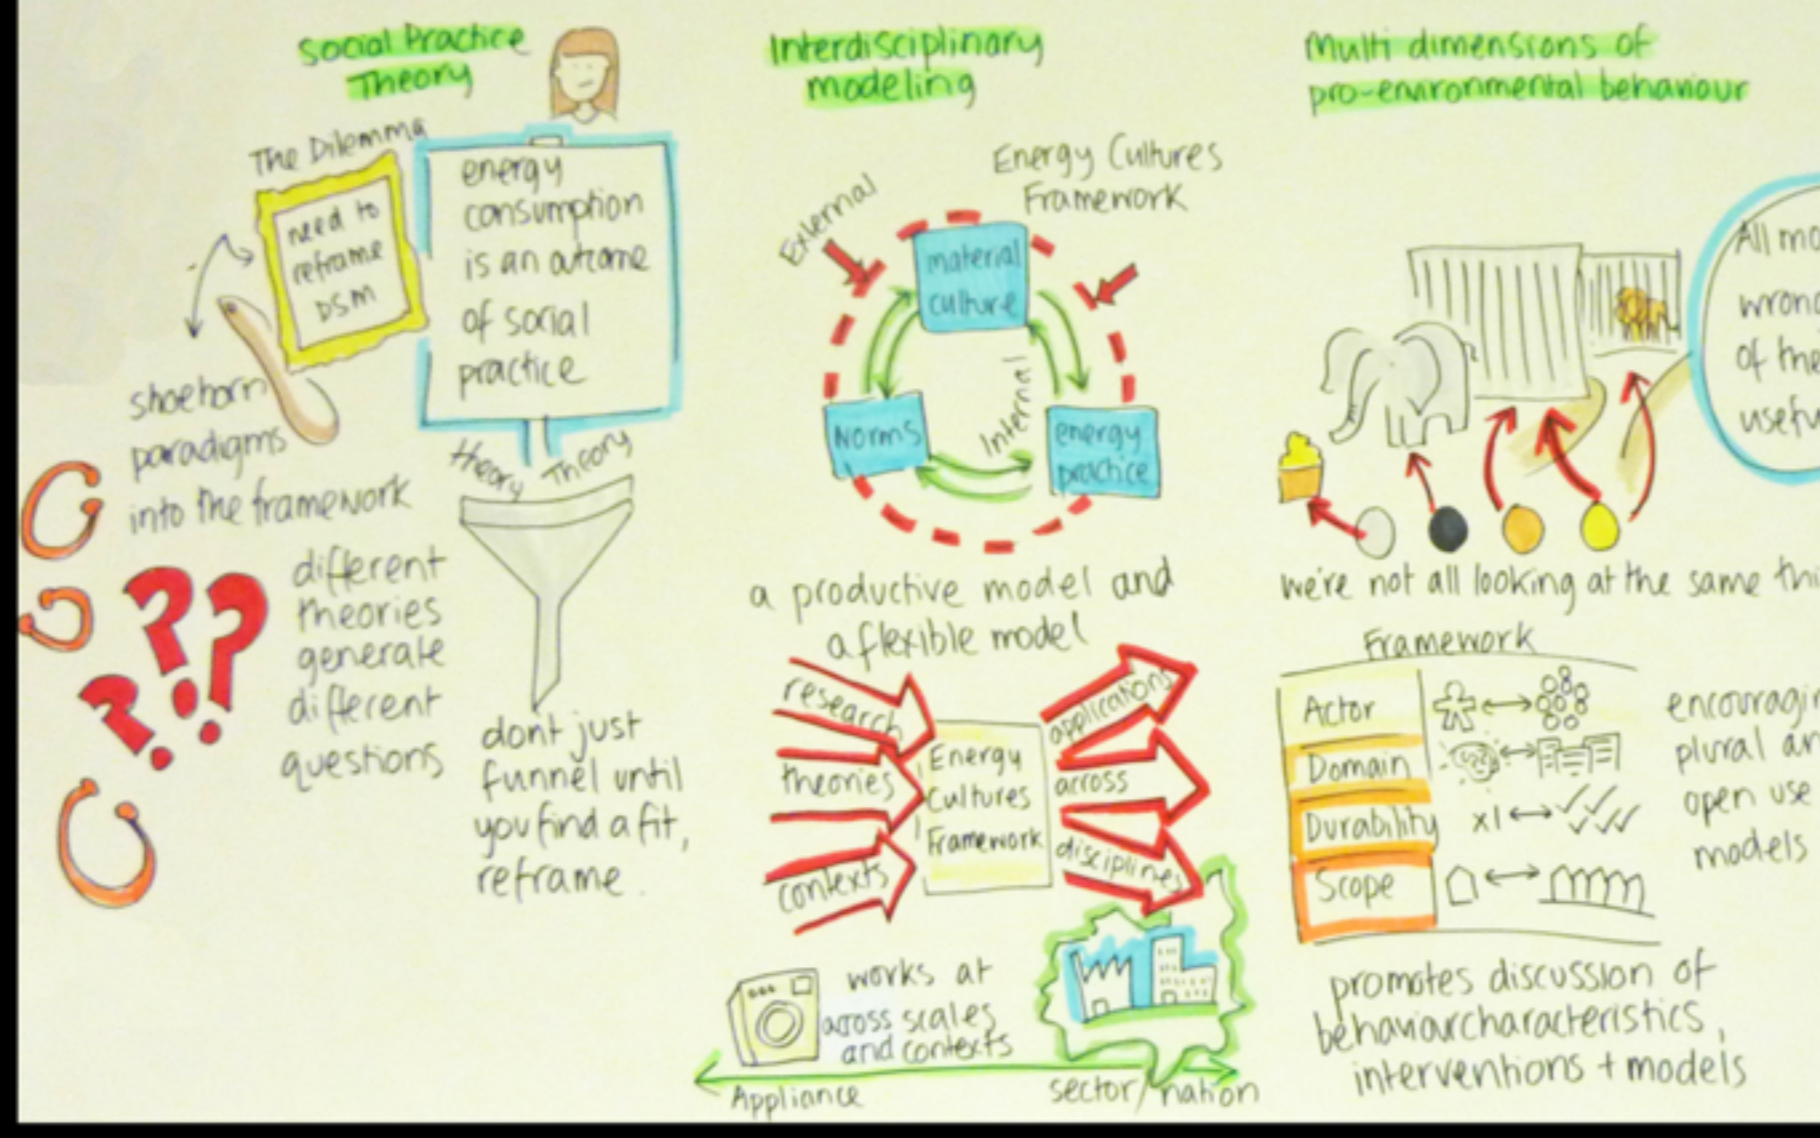 Social Practice
Theory
The Dilemma
need to
reframe
DSM
energy
consumption
is an outcome
of social
practice
shoehorn
paradigms
into the framework
theory Theory
different
theories
generate
different
questions
dont just
funnel until
you find a fit,
reframe.
Interdisciplinary
modeling
Energy Cultures
Framework
External
material
culture
Internal
Norms
energy
practice
a productive model and
a flexible model
research
theories
contexts
Energy
Cultures
Framework
applications
across
disciplines
works at
across scales
and contexts
Appliance
sector/nation
Multi dimensions of
pro-environmental behaviour
All
of
we're not all looking at the same
Framework
Actor
Domain
Durability
x1
Scope
plural
open use
models
promotes discussion of
behaviour characteristics,
interventions + models